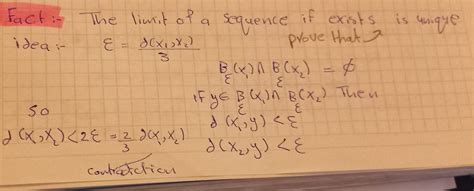 Fact:- The limit of a sequence if exists is unique
prove that
idea:- ε = d(x₁,x₂)/3
B_ε(x₁) ∩ B_ε(x₂) = ∅
if y ∈ B_ε(x₁) ∩ B_ε(x₂) Then
so d(x₁,y) < ε
d(x₁,x₂) < 2ε = 2/3 d(x₁,x₂) d(x₂,y) < ε
contradiction